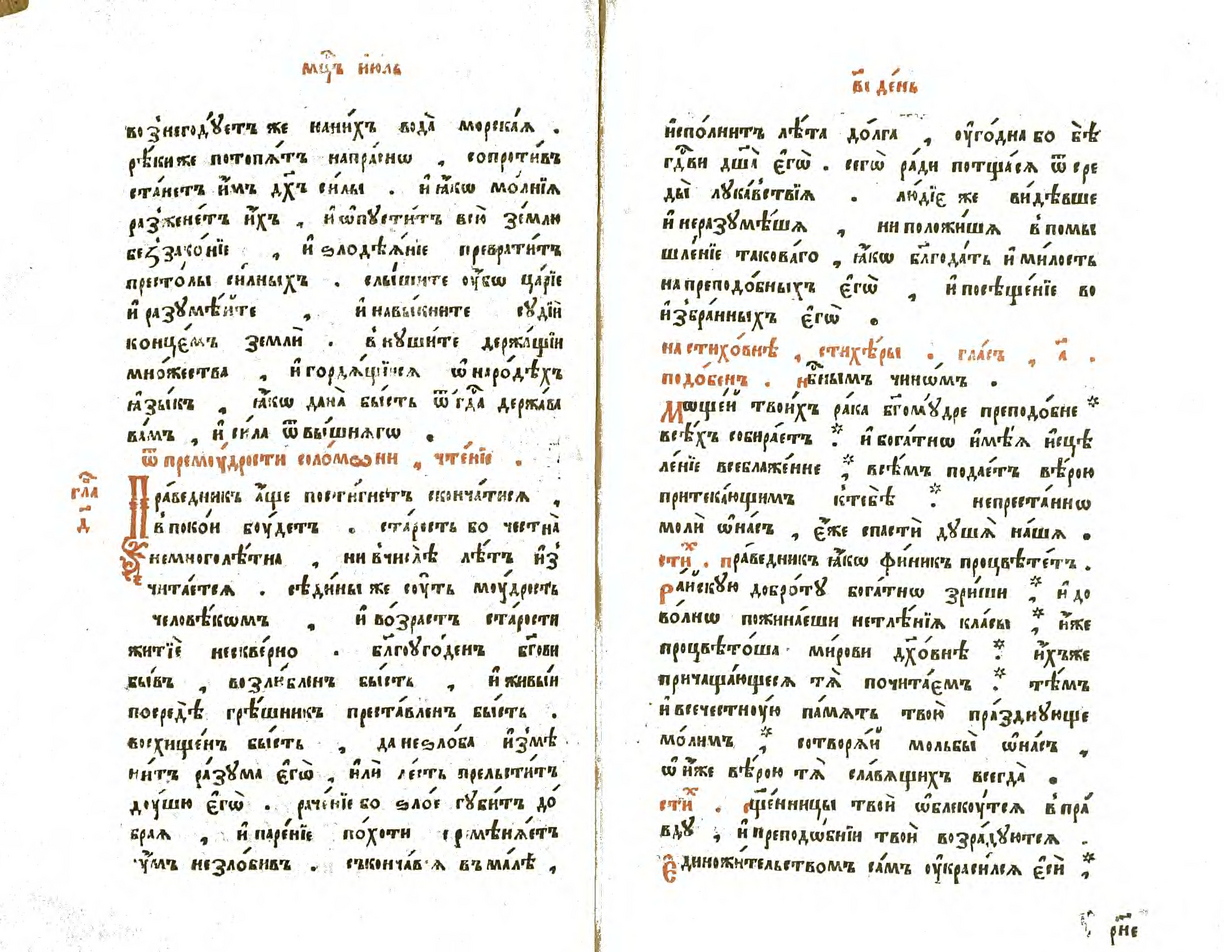 мц҃ъ і҆ю́ль
вознегодꙋ́етъ же нани́хъ вода̀ морска́ѧ .
рѣ́киже пото́пѧтъ напра́снѡ , сопроти́въ
ста́нетъ и҆̀мъ дх҃ъ си́лы . и҆ ꙗ҆́кѡ мо́лнїѧ
разжене́тъ и҆̀хъ , и҆ ѡ҆пꙋсти́тъ всю̀ зе́млю
беззако́нїе , и҆ ѕлодѣѧ́нїе преврати́тъ
престо́лы си́лныхъ . слы́шите ᲂу҆̀бѡ ца́рїе
и҆ разꙋмѣ́йте , и҆ навы́кните сꙋдїѝ
конце́мъ землѝ . внꙋши́те держа́щїи
мно́жества , и҆ гордѧ́щїисѧ ѡ҆ наро́дѣхъ
ꙗ҆зы́къ , ꙗ҆́кѡ дана̀ бы́сть ѿ гдⷭ҇а держава
ва́мъ , и҆ си́ла ѿ вы́шнѧгѡ .
ѿ премоу́дрости соло́мѡни , чте́нїе .
гла҃
д҃
Пра́ведникъ а҆́ще пости́гнетъ сконча́тисѧ ,
в поко́и бᲂу́детъ . ста́рость бо честна̀
немноголѣ́тна , ни вчислѣ̀ лѣ́тъ и҆з
чита́етсѧ . сѣди́ны же сᲂу́ть мᲂу́дрость
человѣ́кѡмъ , и҆ во́зрастъ ста́рости
житїѐ нескве́рно . бл҃гᲂуго́денъ бг҃ови
бы́въ , возлю́бленъ бы́сть , и҆ живы́и
посредѣ̀ грѣ́шникъ преста́вленъ бы́сть .
восхище́нъ бы́сть , да неѕло́ба и҆змѣ
ни́тъ ра́зꙋма є҆гѡ̀ , и҆лѝ ле́сть прельсти́тъ
дᲂу́шю є҆гѡ̀ . раче́нїе бо ѕло́е гꙋби́тъ до́
браѧ , и҆ паре́нїе по́хоти премѣнѧ́етъ
ᲂу҆́мъ незло́бивъ . съконча́всѧ въмалѣ̀ ,
в҃і де́нь
и҆спо́лнитъ лѣ́та до́лга , ᲂу҆го́дна бо бѣ̀
гдⷭ҇ви дш҃а̀ є҆гѡ̀ . сегѡ̀ ра́ди потща́сѧ ѿ сре
ды̀ лꙋка́вствїѧ . лю́дїе же ви́дѣвше
и҆ неразꙋмѣ́шѧ , ни положи́шѧ в помы
шле́нїе такова́го , ꙗ҆́кѡ бл҃года́ть и҆ ми́лость
на преподо́бныхъ є҆гѡ̀ , и҆ посѣще́нїе во
и҆збра́нныхъ є҆гѡ̀ .
на стихо́внѣ , стихѣ́ры . гла́съ , а҃ .
подо́бенъ . нбⷭ҇ным̾ чинѡ́мъ .
Мѡще́й твои́хъ ра́ка бг҃омꙋ́дре преподо́бне *
всѣ́хъ собира́етъ * и҆ бога́тнѡ и҆мѣ́ѧ и҆сцѣ
ле́нїе всебла́жение * всѣ́мъ подае́тъ вѣ́рою
притека́ющимъ ктебѣ̀ * непреста́ннѡ
молѝ ѡ҆на́съ , є҆́же спастѝ дꙋшѧ̀ на́шѧ .
сти́х . пра́ведникъ ꙗ҆́кѡ фи́никъ процвѣте́тъ .
Ра́йскꙋю добро́тꙋ бога́тнѡ зри́ши * и҆ до
во́лнѡ пожина́еши нетлѣ́нїѧ кла́сы * и҆̀же
процвѣто́ша ми́рови дх҃о́внѣ * и҆́хъже
причаща́ющесѧ тѧ̀ почита́емъ * тѣ́мъ
и҆ всечестнᲂу́ю па́мѧть твою̀ пра́зднꙋюще
мо́лимъ * сотворѧ́й мольбы̀ ѡ҆на́съ ,
ѡ҆ и҆̀же вѣ́рою тѧ̀ сла́вѧщихъ всегда̀ .
сти́х . сщ҃е́нницы твоѝ ѡ҆блекᲂу́тсѧ в пра́
вдꙋ , и҆ преподо́бнїи твоѝ возра́дꙋютсѧ .
Є҆диножи́тельствомъ са́мъ ᲂу҆краси́лсѧ є҆сѝ *
рн҃е